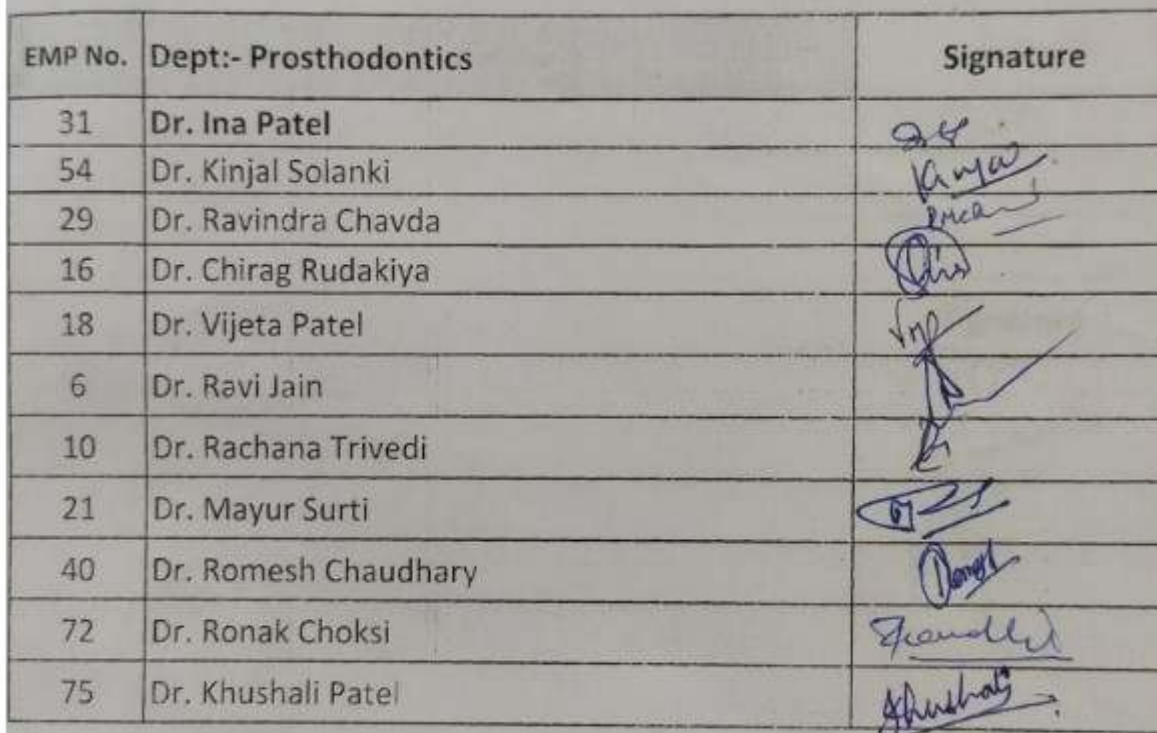 EMP No. Dept:- Prosthodontics Signature
31 Dr. Ina Patel
54 Dr. Kinjal Solanki
29 Dr. Ravindra Chavda
16 Dr. Chirag Rudakiya
18 Dr. Vijeta Patel
6 Dr. Ravi Jain
10 Dr. Rachana Trivedi
21 Dr. Mayur Surti
40 Dr. Romesh Chaudhary
72 Dr. Ronak Choksi
75 Dr. Khushali Patel Khushali